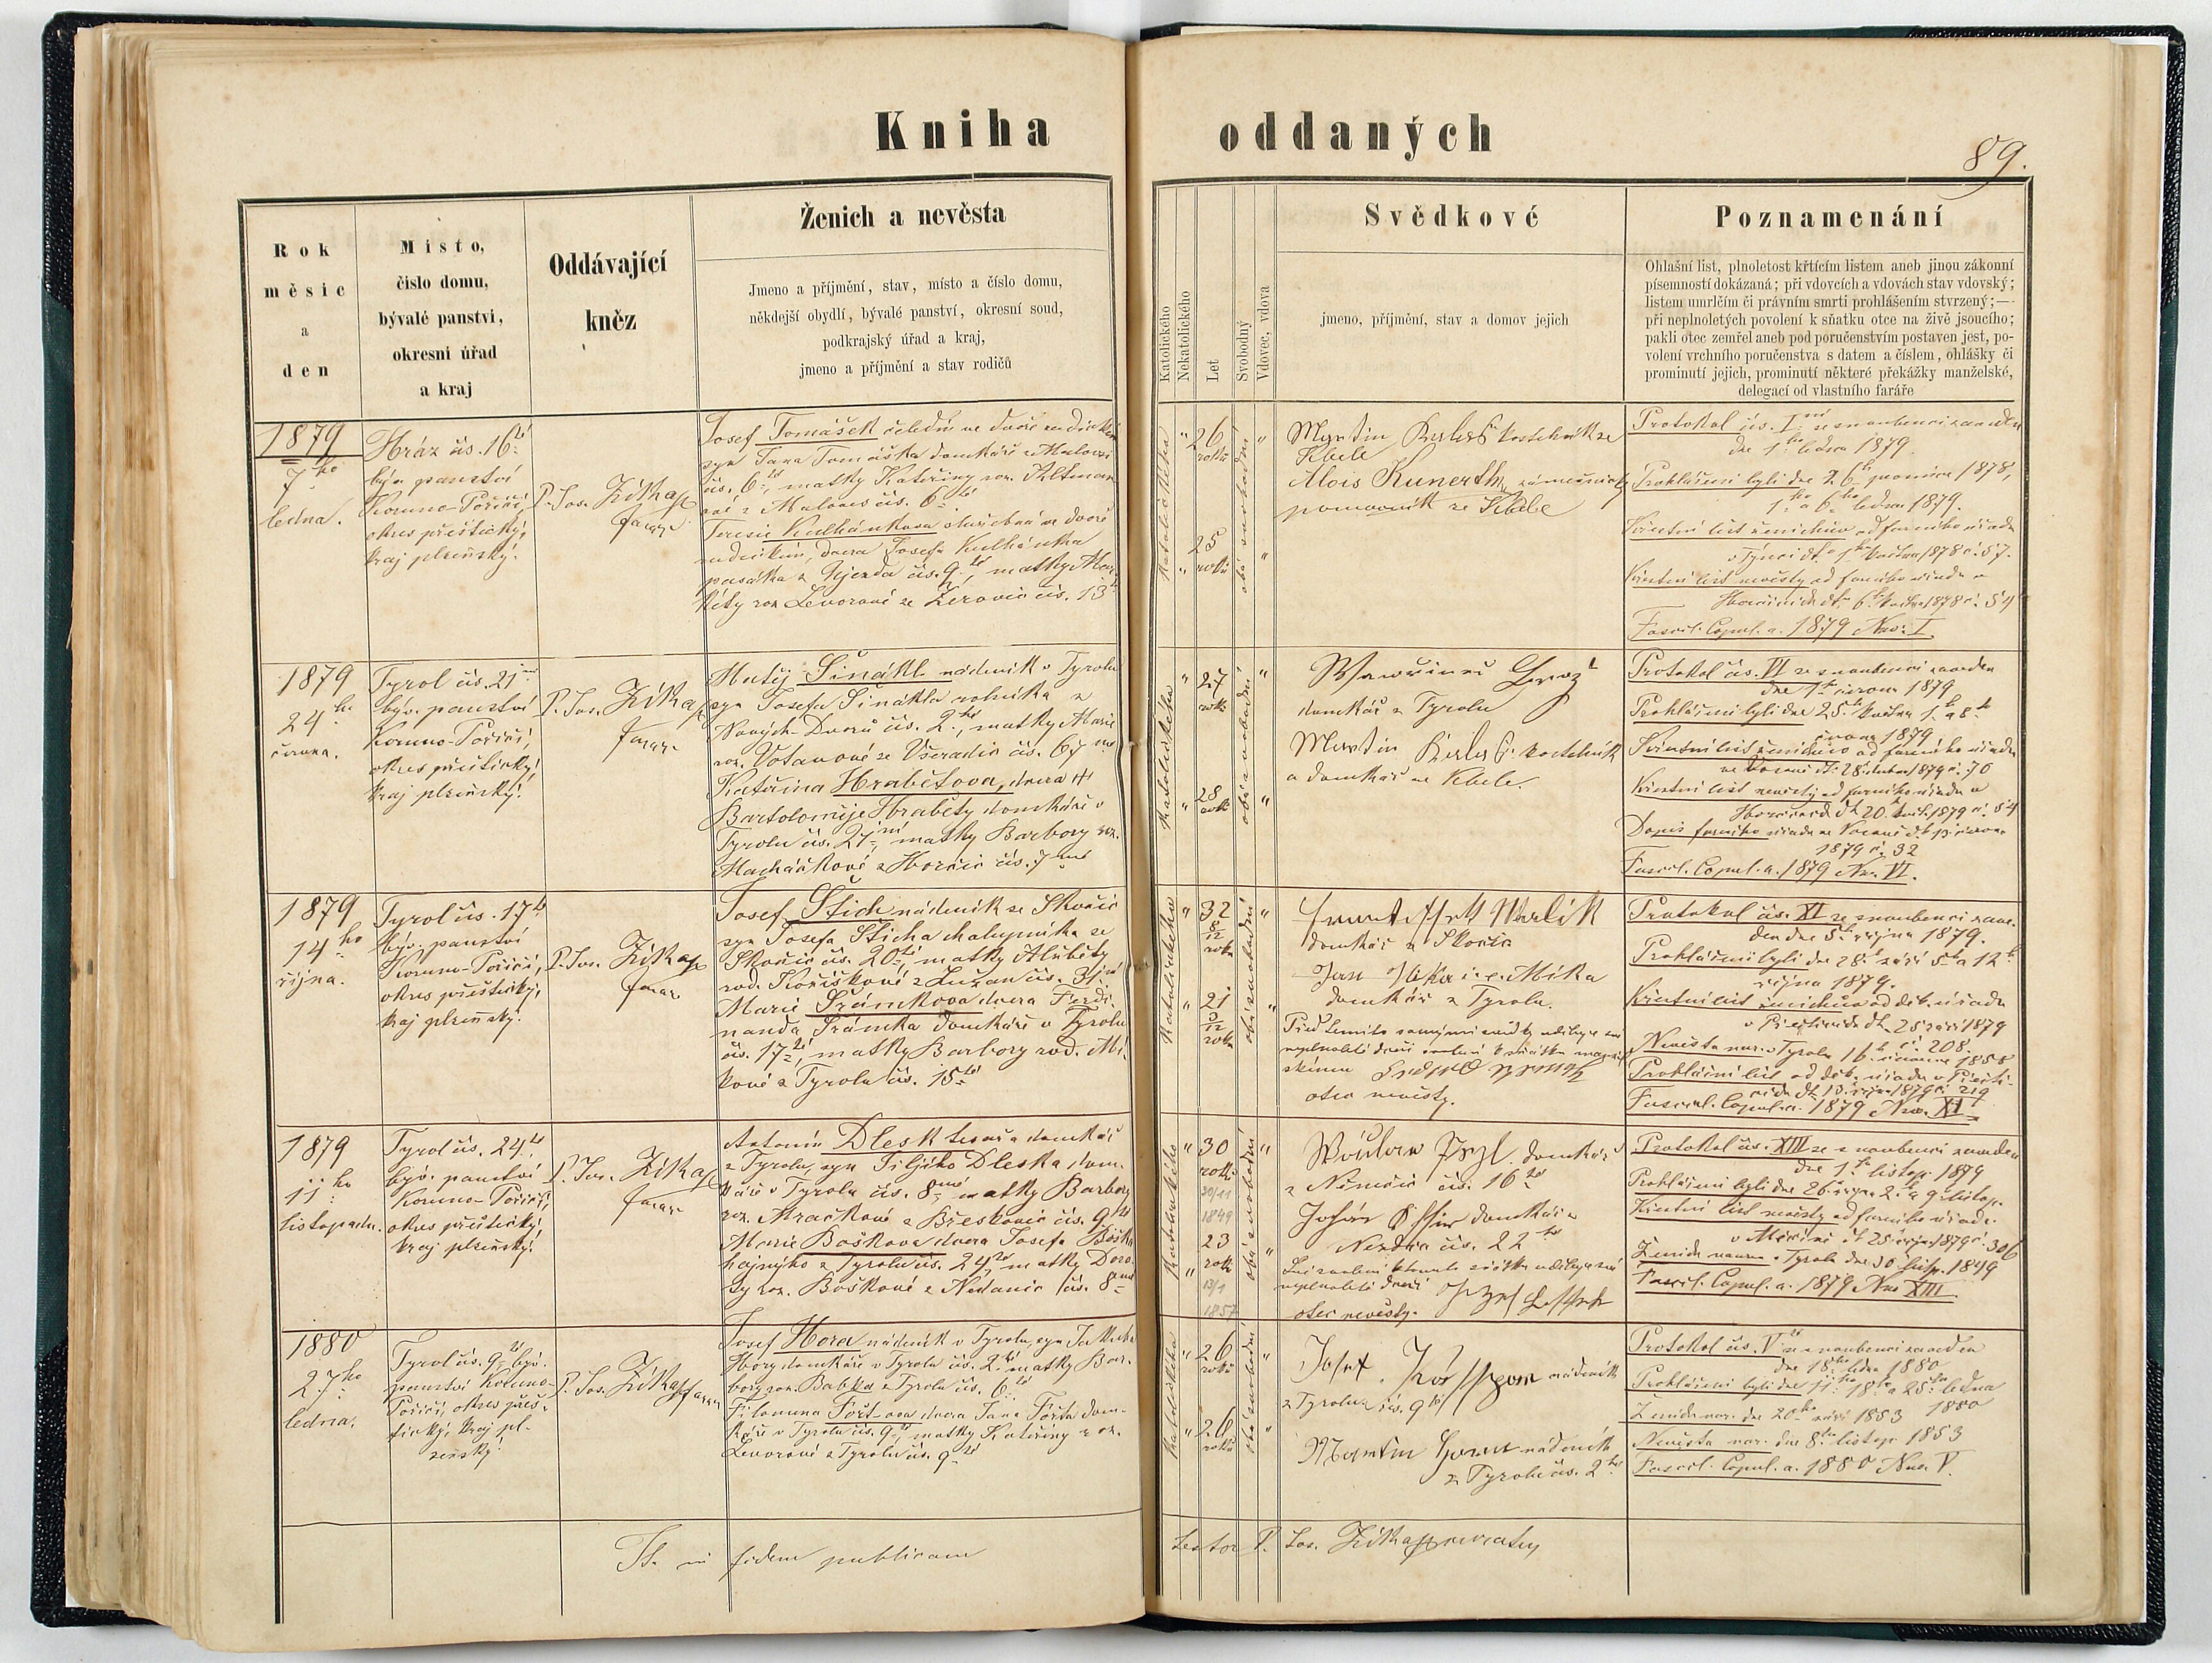 Kniha oddaných
89.
Rok
měsíc
a
den
Místo,
číslo domu,
bývalé panství,
okresní úřad
a kraj
Oddávající
kněz
Ženich a nevěsta
Jmeno a příjmění, stav, místo a číslo domu,
někdejší obydlí, bývalé panství, okresní soud,
podkrajský úřad a kraj,
jmeno a příjmění a stav rodičů
Katolického
Nekatolického
Let
Svobodný
Vdovec, vdova
Svědkové
jmeno, příjmění, stav a domov jejich
Poznamenání
Ohlašní list, plnoletost křtícím listem aneb jinou zákonní
písemností dokázaná; při vdovcích a vdovách stav vdovský;
listem umrlčím či právním smrti prohlášením stvrzený;—
při neplnoletých povolení k sňatku otce na živě jsoucího;
pakli otec zemřel aneb pod poručenstvím postaven jest, po-
volení vrchního poručenstva s datem a číslem, ohlášky či
prominutí jejich, prominutí některé překážky manželské,
delegací od vlastního faráře
1879
7ho
ledna.
Hráz čís. 16té
býv. panství
Koruno-Poříčí,
okres přeštický,
kraj plzeňský.
P. Jos. Zítka
farář
Josef Tomášek čeledín ve dvoře
syn Jana Tomáška domkáře z Malovic
čís. 6té, matky Kateřiny roz. Altman
ové z Malovic čís. 6té
Terezie Kulhánkova služebná ve dvoře
dcera Josefa Kulhánka
pasáka z Újezda čís. 9té, matky Mar-
kéty roz. Levorové ze Žerovic čís. 13té
katolického
26 roků
25 roků
oba svobodní
Martin kostelník ze
Kbele
Alois Kunerth zámečnický
pomocník ze Kbele
Protokol čís. I. se snoubenci zaveden
dne 1ho ledna 1879.
Prohlášeni byli dne 26ho prosince 1878,
1ho a 6ho ledna 1879.
Křestní list ženichův od farního úřadu
Křestní list nevěsty od farního úřadu v
Fascil. Copul. a. 1879 Nro. I.
1879
24ho
června.
Tyrol čís. 21ní
býv. panství
Koruno-Poříčí,
okres přeštický,
kraj plzeňský.
P. Jos. Zítka
farář
Matěj Šinákl nádeník v Tyrolu
syn Josefa Šinákla rolníka z
Nových-Dvorů čís. 2hé, matky Marie
roz. Votavové ze Všeradic čís. 67mé
Kateřina Hrabětova, dcera
Bartoloměje Hraběty domkáře v
Tyrolu čís. 21ní, matky Barbory roz.
Macháčkové z Horčic čís. 7mé
katolického
27 roků
28 roků
oba svobodní
domkář z Tyrolu
Martin kostelník
a domkář ve Kbele.
Protokol čís. VI se snoubenci zaveden
dne 1ho června 1879
Prohlášeni byli dne 25ho května 1ho a 8ho
června 1879
Křestní list ženichův od farního úřadu
28. dubna 1879 č. 70
Křestní list nevěsty od farního úřadu v
20. květ. 1879 č. 54
Dopis farního úřadu
1879 č. 32
Fascil. Copul. a. 1879 Nro. VI.
1879
14ho
října.
Tyrol čís. 17té
býv. panství
Koruno-Poříčí,
okres přeštický,
kraj plzeňský.
P. Jos. Zítka
farář
Josef Štich nádeník ze Skočic
syn Josefa Šticha chalupníka ze
Skočic čís. 20té, matky Alžběty
rod. Koříškové z Lužan čís. 31ní
Marie Šrámkova dcera Ferdi-
nanda Šrámka domkáře v Tyrolu
čís. 17té, matky Barbory rod. Mí-
kové z Tyrolu čís. 15té
katolického
32 8/12 roku
21 3/12 roku
oba svobodní
domkář z Skočic
Jan Mika i. e. Míka
domkář z Tyrolu.
otec nevěsty.
Protokol čís. XI se snoubenci zave-
den dne 5ho října 1879.
Prohlášeni byli dne 28. září 5ho a 12ho
října 1879.
Křestní list ženichův od děk. úřadu
v Přešticích 25 září 1879
č. 208.
Nevěsta nar. v Tyrolu 16ho července 1858
Prohlášní list od děk. úřadu v Přešti-
cích 13. října 1879 č. 219
Fascikl. Copul. a. 1879 Nro. XI
1879
11ho
listopadu.
Tyrol čís. 24té,
býv. panství
Koruno-Poříčí,
okres přeštický,
kraj plzeňský.
P. Jos. Zítka
farář
Antonín Dlesk tesař a domkář
z Tyrolu, syn Jiljího Dleska dom-
káře v Tyrolu čís. 8mé matky Barbory
roz. Mračkové z Břeskovic čís. 9té
Marie Boškova dcera Josefa Boška
hajného z Tyrolu čís. 24té matky Doro-
ty roz. Boškové z Nedanic čís. 8mé
katolického
30 roků
30/11
1849
23 roků
13/1
1857
oba svobodní
Václav domkář
z Němčic čís. 16té
domkář z
Nezdic čís. 22hé
neplnoleté dceři
otec nevěsty.
Protokol čís. XIII se snoubenci zaveden
dne 1ho listop. 1879
Prohlášeni byli dne 26. října 2ho a 9ho listop.
Křestní list nevěsty od farního úřadu
v Měčíně 25 října 1879 č. 306
Ženich narozen v Tyrolu dne 30 listop. 1849
Fascil. Copul. a. 1879 Nro XIII.
1880
27ho
ledna.
Tyrol čís. 9té býv.
panství Koruno-
Poříčí, okres přeš-
tický, kraj pl-
zeňský.
P. Jos. Zítka farář
Josef Hora nádeník v Tyrolu, syn Jakuba
Hory domkáře v Tyrolu čís. 2hé matky Bar-
bory roz. Babka z Tyrolu čís. 6té
Filomena Foštova dcera Jana Fošta dom-
káře v Tyrolu čís. 9té, matky Kateřiny roz.
Levorové z Tyrolu čís. 9té
katolického
26 roků
26 roků
oba svobodní
Josef nádeník
z Tyrolu čís. 9té
Martin Hora nádeník
z Tyrolu čís. 2hé
Protokol čís. V se snoubenci zaveden
dne 18ho ledna 1880
Prohlášeni byli dne 11ho 18ho a 25ho ledna
1880
Ženich nar. dne 20ho září 1853
Nevěsta nar. dne 8ho listop. 1853
Fascil. Copul. a. 1880 Nro. V.
in fidem publicam
testor P. Jos. Zítka